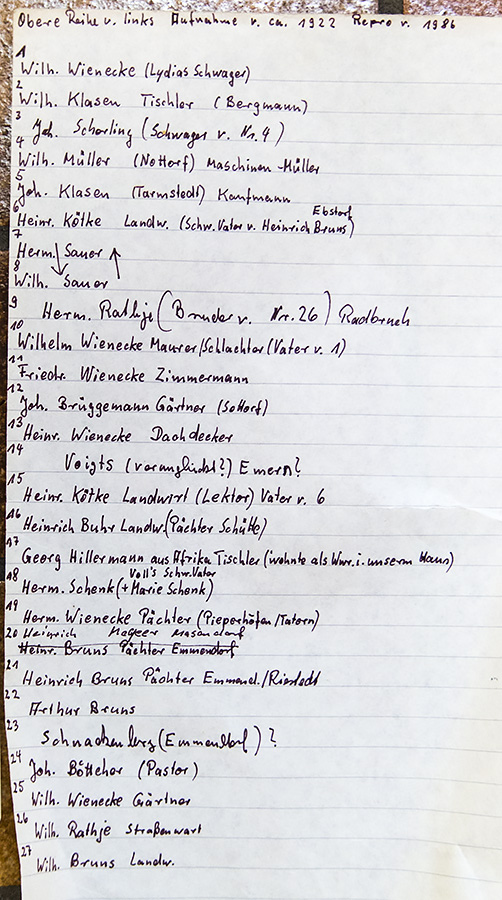 Obere Reihe v. links Aufnahme v. ca. 1922 Repro v. 1986
1
Wilh. Wienecke (Lydias Schwager)
2
Wilh. Klasen Tischler (Bergmann)
3
Joh. Scharling (Schwager v. Nr. 4)
4
Wilh. Müller (Nottorf) Maschinen-Müller
5
Joh. Klasen (Tarmstedt) Kaufmann
6
Ebstorf
Heinr. Kötke Landw. (Schw. Vater v. Heinrich Bruns)
7
Herm. Sauer
8
Wilh. Sauer
9
Herm. Rathje (Bruder v. Nr. 26) Radbruch
10
Wilhelm Wienecke Maurer/Schlachter (Vater v. 1)
11
Friedr. Wienecke Zimmermann
12
Joh. Brüggemann Gärtner (Sottorf)
13
Heinr. Wienecke Dachdecker
14
Voigts (verunglückt?) Emern?
15
Heinr. Kötke Landwirt (Lektor) Vater v. 6
16
Heinrich Buhr Landw. (Pächter Schütte)
17
Georg Hillermann aus Afrika Tischler (wohnte als Wwr. i. unserm Haus)
18
Voll's Schw. Vater
Herm. Schenk (+ Marie Schenk)
19
Herm. Wienecke Pächter (Pieperhöfen/Tatern)
20 Heinrich Masendorf
Heinr. Bruns Pächter Emmendorf
21
Heinrich Bruns Pächter Emmend./Riestedt
22
Arthur Bruns
23
Schnackenberg (Emmendorf) ?
24
Joh. Böttcher (Pastor)
25
Wilh. Wienecke Gärtner
26
Wilh. Rathje Straßenwart
27
Wilh. Bruns Landw.